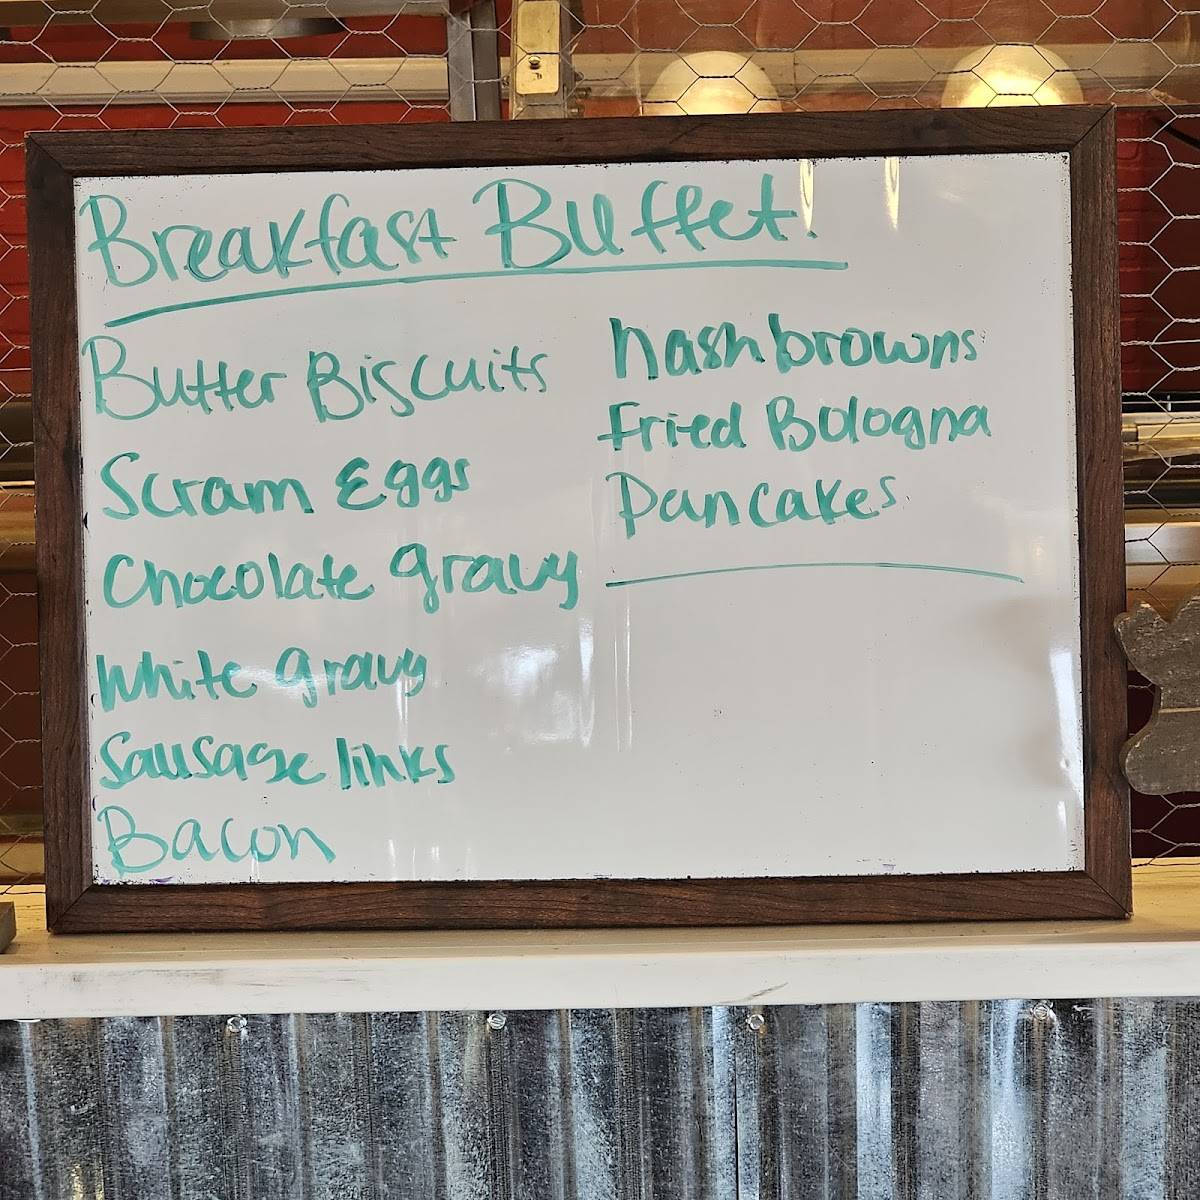 Breakfast Buffet.
Butter Biscuits
Scram Eggs
Chocolate gravy
White gravy
Sausage links
Bacon
hashbrowns
Fried Bologna
Pancakes